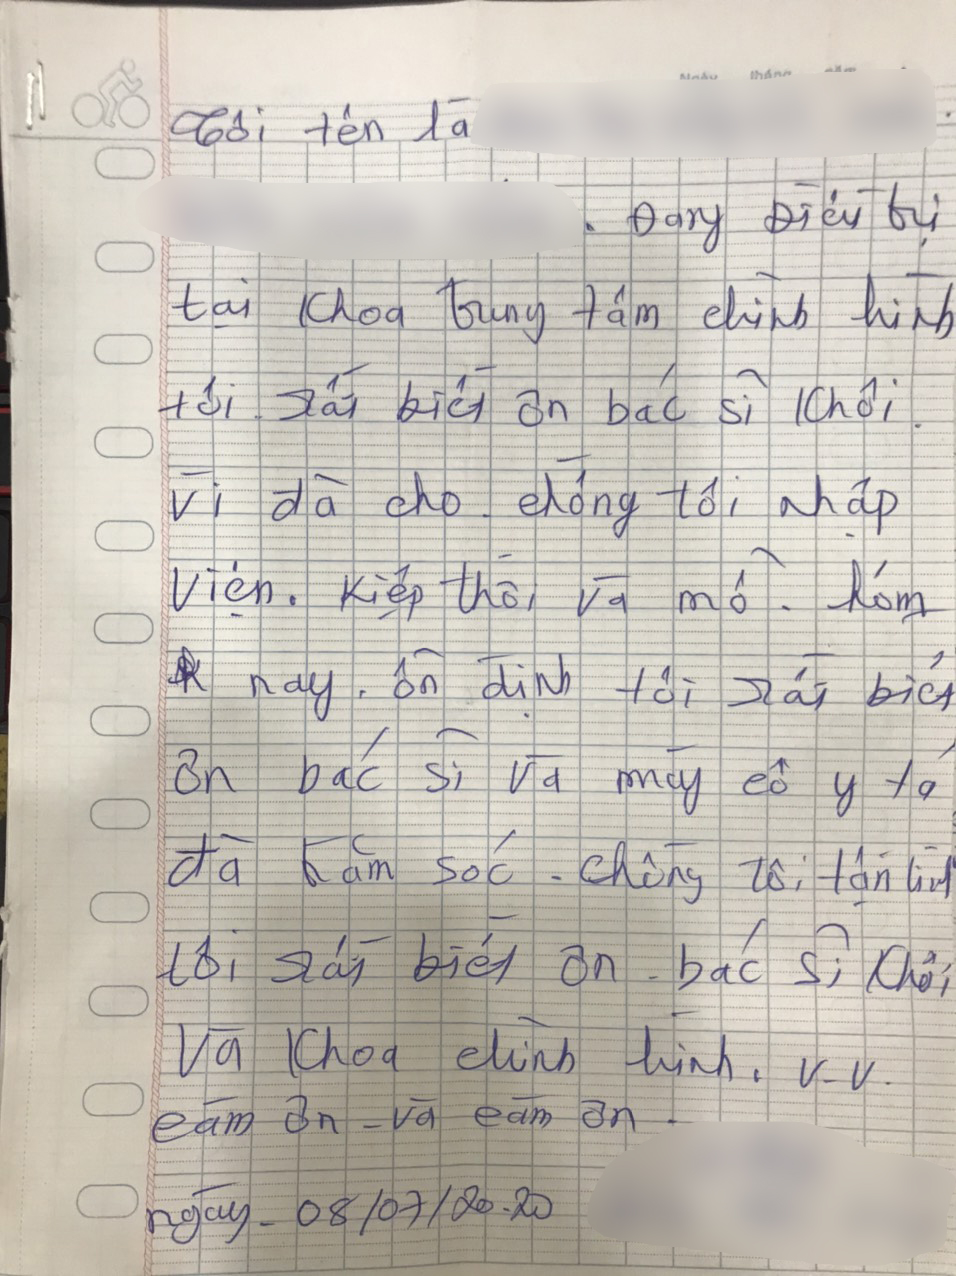 Ngày tháng năm
Tôi tên là
. Đang Điều trị
tại Khoa trung tâm chình hình
tôi. rất biết ơn bác sĩ Khôi.
Vì đã cho. chồng tôi nhập
Viện. Kiệp thời và mổ. hôm
nay. ổn định tôi rất biết
ơn bác sĩ và mấy cô y tá
đã chăm sóc. chồng tôi tận tình
tôi rất biết ơn. bác sĩ Khôi,
Và Khoa chình hình. v.v.
cảm ơn - và cảm ơn.
ngày - 08/07/2020